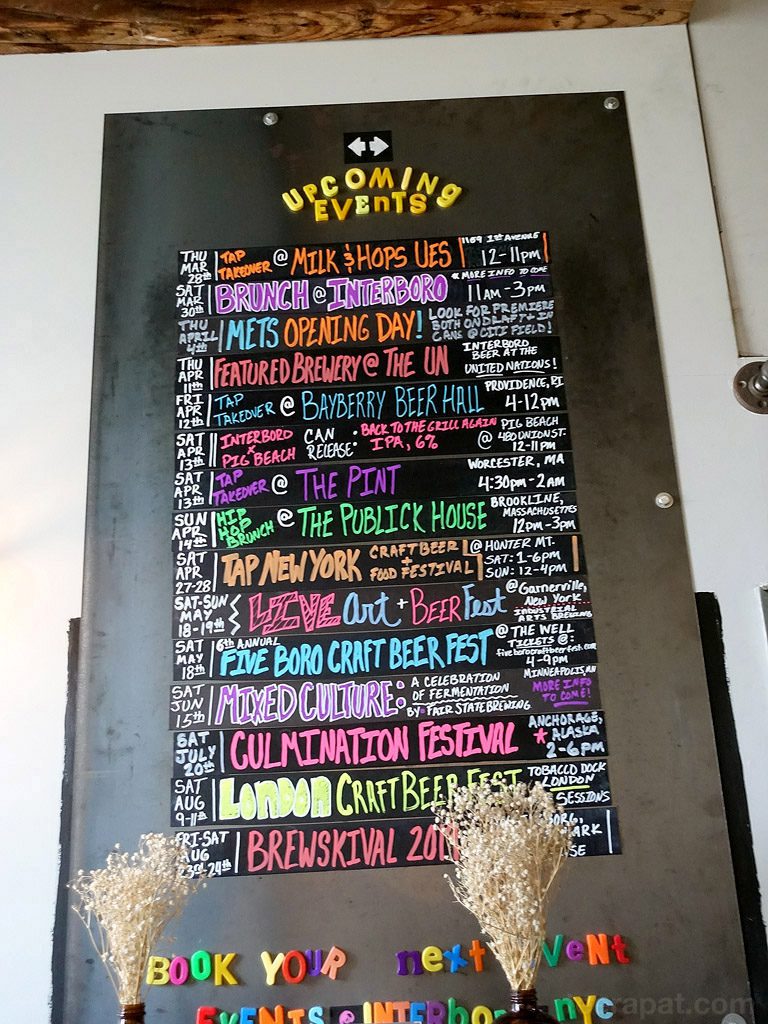 UPCOMING
EVENTS
THU MAR 28th TAP TAKEOVER @ MILK & HOPS UES 1169 1st AVENUE 12-11pm
SAT MAR 30th BRUNCH @ INTERBORO * MORE INFO TO COME 11AM-3pm
THU APRIL 4th METS OPENING DAY! LOOK FOR PREMIERE BOTH ON DRAFT & IN CANS @ CITI FIELD!
THU APR 11th FEATURED BREWERY @ THE UN INTERBORO BEER AT THE UNITED NATIONS!
FRI APR 12th TAP TAKEOVER @ BAYBERRY BEER HALL PROVIDENCE, RI 4-12pm
SAT APR 13th INTERBORO x PIG BEACH CAN RELEASE: BACK TO THE GRILL AGAIN IPA, 6% @ PIG BEACH 480 UNION ST. 12-11PM
SAT APR 13th TAP TAKEOVER @ THE PINT WORCESTER, MA 4:30pm-2AM
SUN APR 14th HIP HOP BRUNCH @ THE PUBLICK HOUSE BROOKLINE, MASSACHUSETTS 12pm-3pm
SAT APR 27-28 TAP NEW YORK CRAFT BEER + FOOD FESTIVAL @ HUNTER MT. SAT: 1-6pm SUN: 12-4pm
SAT-SUN MAY 18-19th LIVE Art + BEER Fest @ Garnerville, New York INDUSTRIAL ARTS BREWING
SAT MAY 18th 6th ANNUAL FIVE BORO CRAFT BEER FEST @ THE WELL TICKETS @: fiveborocraftbeerfest.com 4-9PM
SAT JUN 15th MIXED CULTURE: A CELEBRATION OF FERMENTATION BY: FAIR STATE BREWING MINNEAPOLIS, MN MORE INFO TO COME!
SAT JULY 20th CULMINATION FESTIVAL * ANCHORAGE, ALASKA 2-6PM
SAT AUG 9-11th LONDON CRAFT BEER FEST TOBACCO DOCK LONDON SESSIONS
FRI-SAT AUG 23rd-24th BREWSKIVAL
BOOK YOUR next EVENT
EVENTS @ INTERBORO nyc
rapat.com